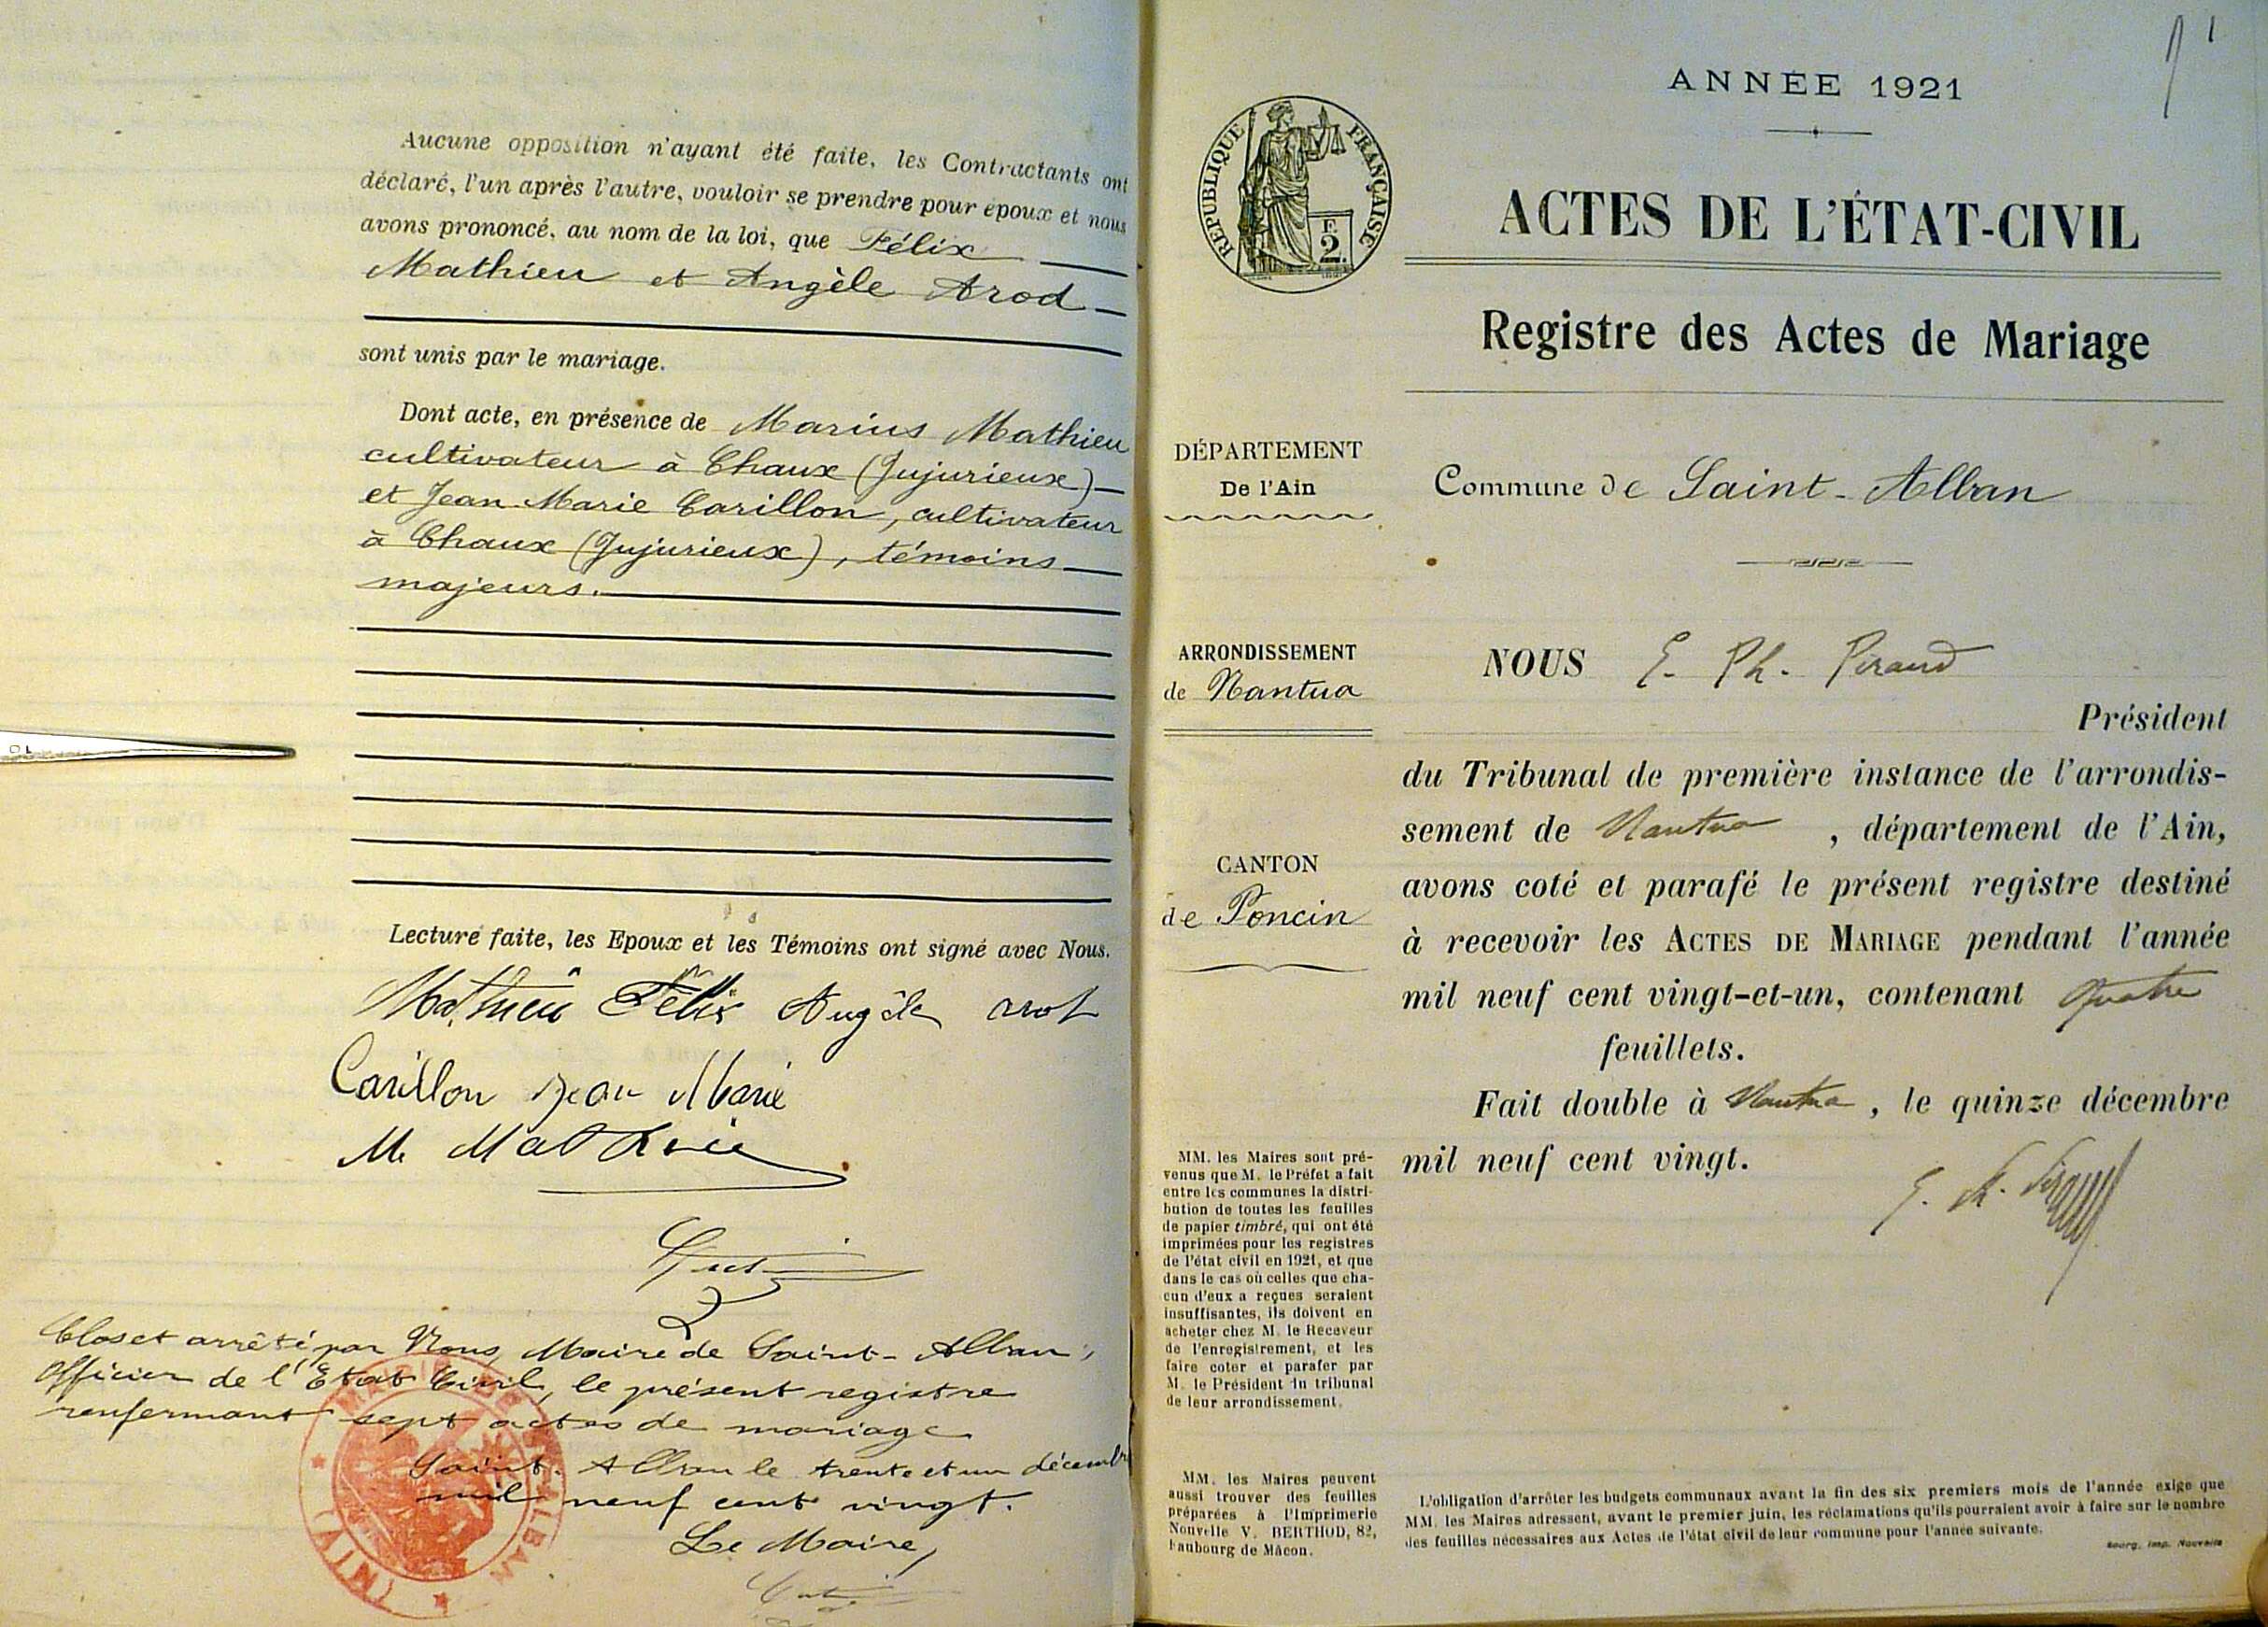 Aucune opposition n'ayant été faite, les Contractants ont
déclaré, l'un après l'autre, vouloir se prendre pour époux et nous
avons prononcé, au nom de la loi, que Félix
Mathieu et Angèle Arod
sont unis par le mariage.
Dont acte, en présence de Marius Mathieu
cultivateur à Chaux (Jujurieux)
et Jean Marie Carillon, cultivateur
à Chaux (Jujurieux), témoins
majeurs.
Lecture faite, les Epoux et les Témoins ont signé avec Nous.
Mathieu Félix Angèle arot
Carillon Jean Marie
M. Mathieu
Clos et arrêté par Nous, Maire de Saint-Alban,
Officier de l'Etat Civil, le présent registre
renfermant sept actes de mariage
Saint-Alban le trente et un décembre
mil neuf cent vingt.
Le Maire,
MAIRIE ST ALBAN (AIN)
10
1
ANNÉE 1921
RÉPUBLIQUE FRANÇAISE
2F.
ACTES DE L'ÉTAT-CIVIL
Registre des Actes de Mariage
DÉPARTEMENT
De l'Ain
Commune de Saint-Alban
ARRONDISSEMENT
de Nantua
CANTON
de Poncin
NOUS E. Ph. Peraud
Président
du Tribunal de première instance de l'arrondis-
sement de Nantua, département de l'Ain,
avons coté et parafé le présent registre destiné
à recevoir les ACTES DE MARIAGE pendant l'année
mil neuf cent vingt-et-un, contenant Quatre
feuillets.
Fait double à Nantua, le quinze décembre
mil neuf cent vingt.
MM. les Maires sont pré-
venus que M. le Préfet a fait
entre les communes la distri-
bution de toutes les feuilles
de papier timbré, qui ont été
imprimées pour les registres
de l'état civil en 1921, et que
dans le cas où celles que cha-
cun d'eux a reçues seraient
insuffisantes, ils doivent en
acheter chez M. le Receveur
de l'enregistrement, et les
faire coter et parafer par
M. le Président du tribunal
de leur arrondissement.
MM. les Maires peuvent
aussi trouver des feuilles
préparées à l'Imprimerie
Nouvelle V. BERTHOD, 82,
Faubourg de Mâcon.
L'obligation d'arrêter les budgets communaux avant la fin des six premiers mois de l'année exige que
MM. les Maires adressent, avant le premier juin, les réclamations qu'ils pourraient avoir à faire sur le nombre
des feuilles nécessaires aux Actes de l'état civil de leur commune pour l'année suivante.
Bourg, Imp. Nouvelle